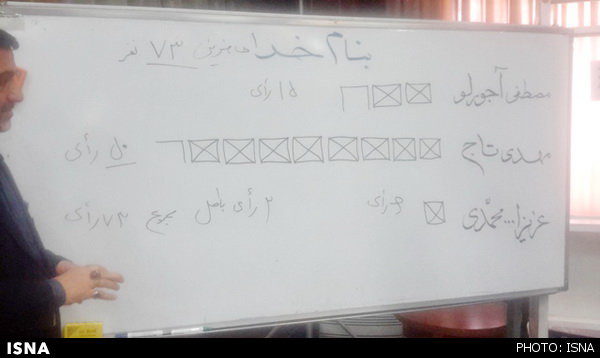 بنام خدا حاضرین ۷۳ نفر
مصطفی آجورلو ۱۵ رأی
مهدی تاج ۵۰ رأی
عزیزا... محمدی ۶ رأی ۲ رأی باطل مجموع ۷۳ رأی
ISNA PHOTO: ISNA